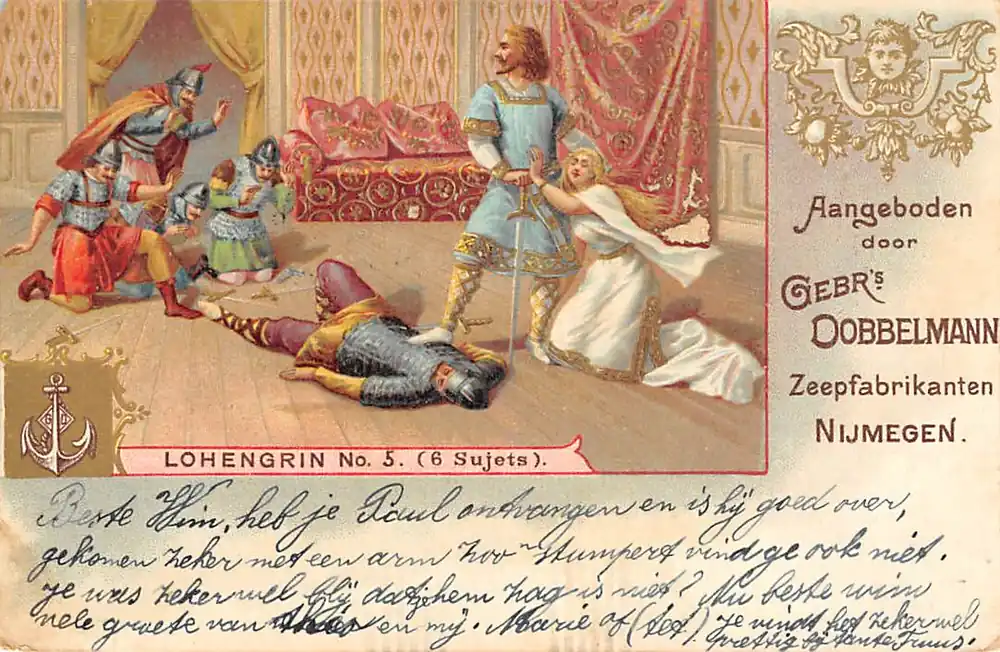 Aangeboden
door
GEBR's
DOBBELMANN
Zeepfabrikanten
NIJMEGEN.
LOHENGRIN No. 5. (6 Sujets).
Beste Wim, heb je Paul ontvangen en is hij goed over,
gekomen zeker met een arm zoo'n stumpert vind ge ook niet.
je was zeker wel blij dat je hem zag is niet? Nu beste wim
vele groete van en mij. Marie of (tet) je vindt het zeker wel
prettig bij tante Truus.